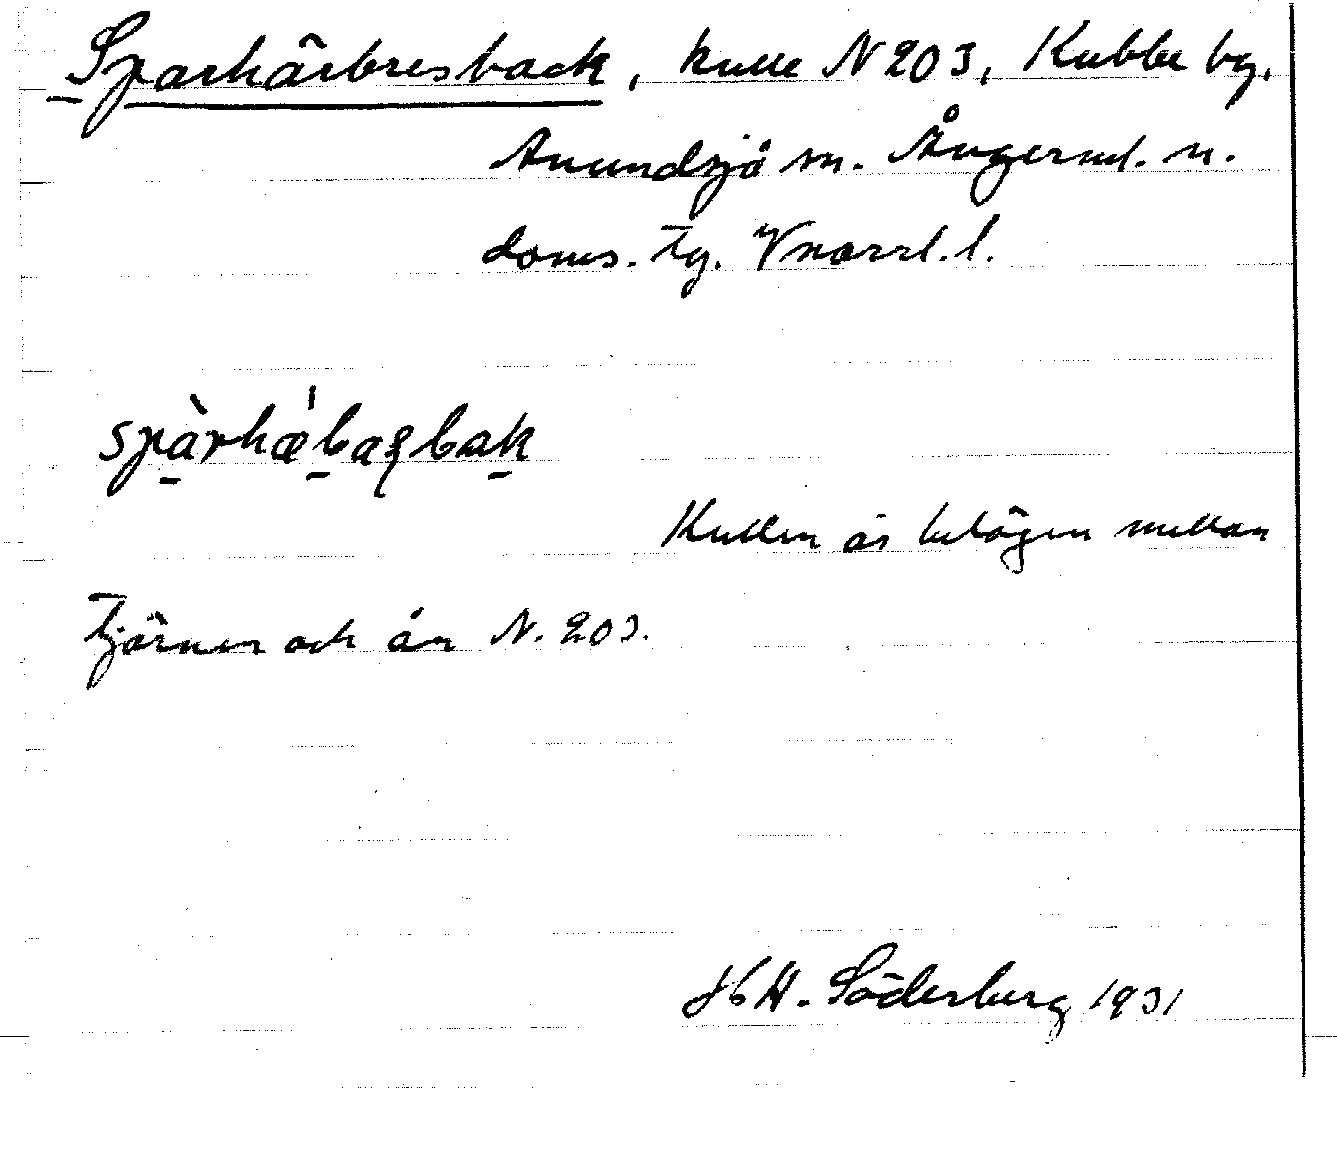 Sparhärbresback, kulle N 203, Kubbe by.
Anundsjö sn. Ångerml. n.
doms. tg. Vnorrl. l.
spàrhæ̀baʂbak
Kullen är belägen mellan
tjärnen och ån N. 203.
H. Söderberg 1931